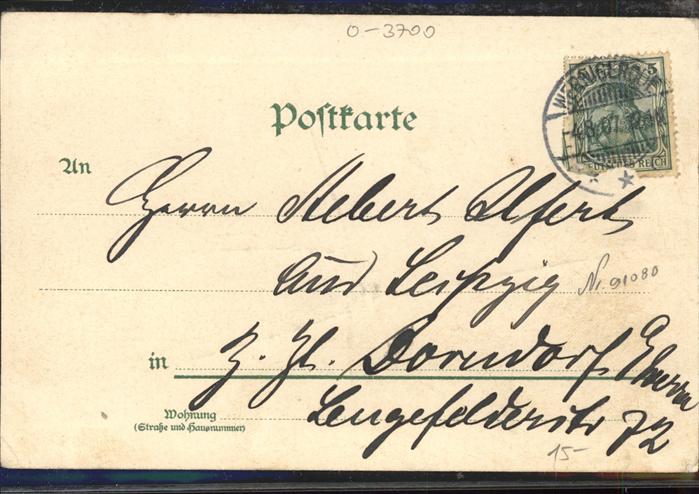 0-3700
5
WERNIGERODE
-4.8.07.
DEUTSCHES REICH
Postkarte
An
Herrn Albert Ufert
aus Leipzig
Nr. 91080
in z. Zt. Dorndorf
Lengefelderstr 72
Wohnung
(Straße und Hausnummer)
15-